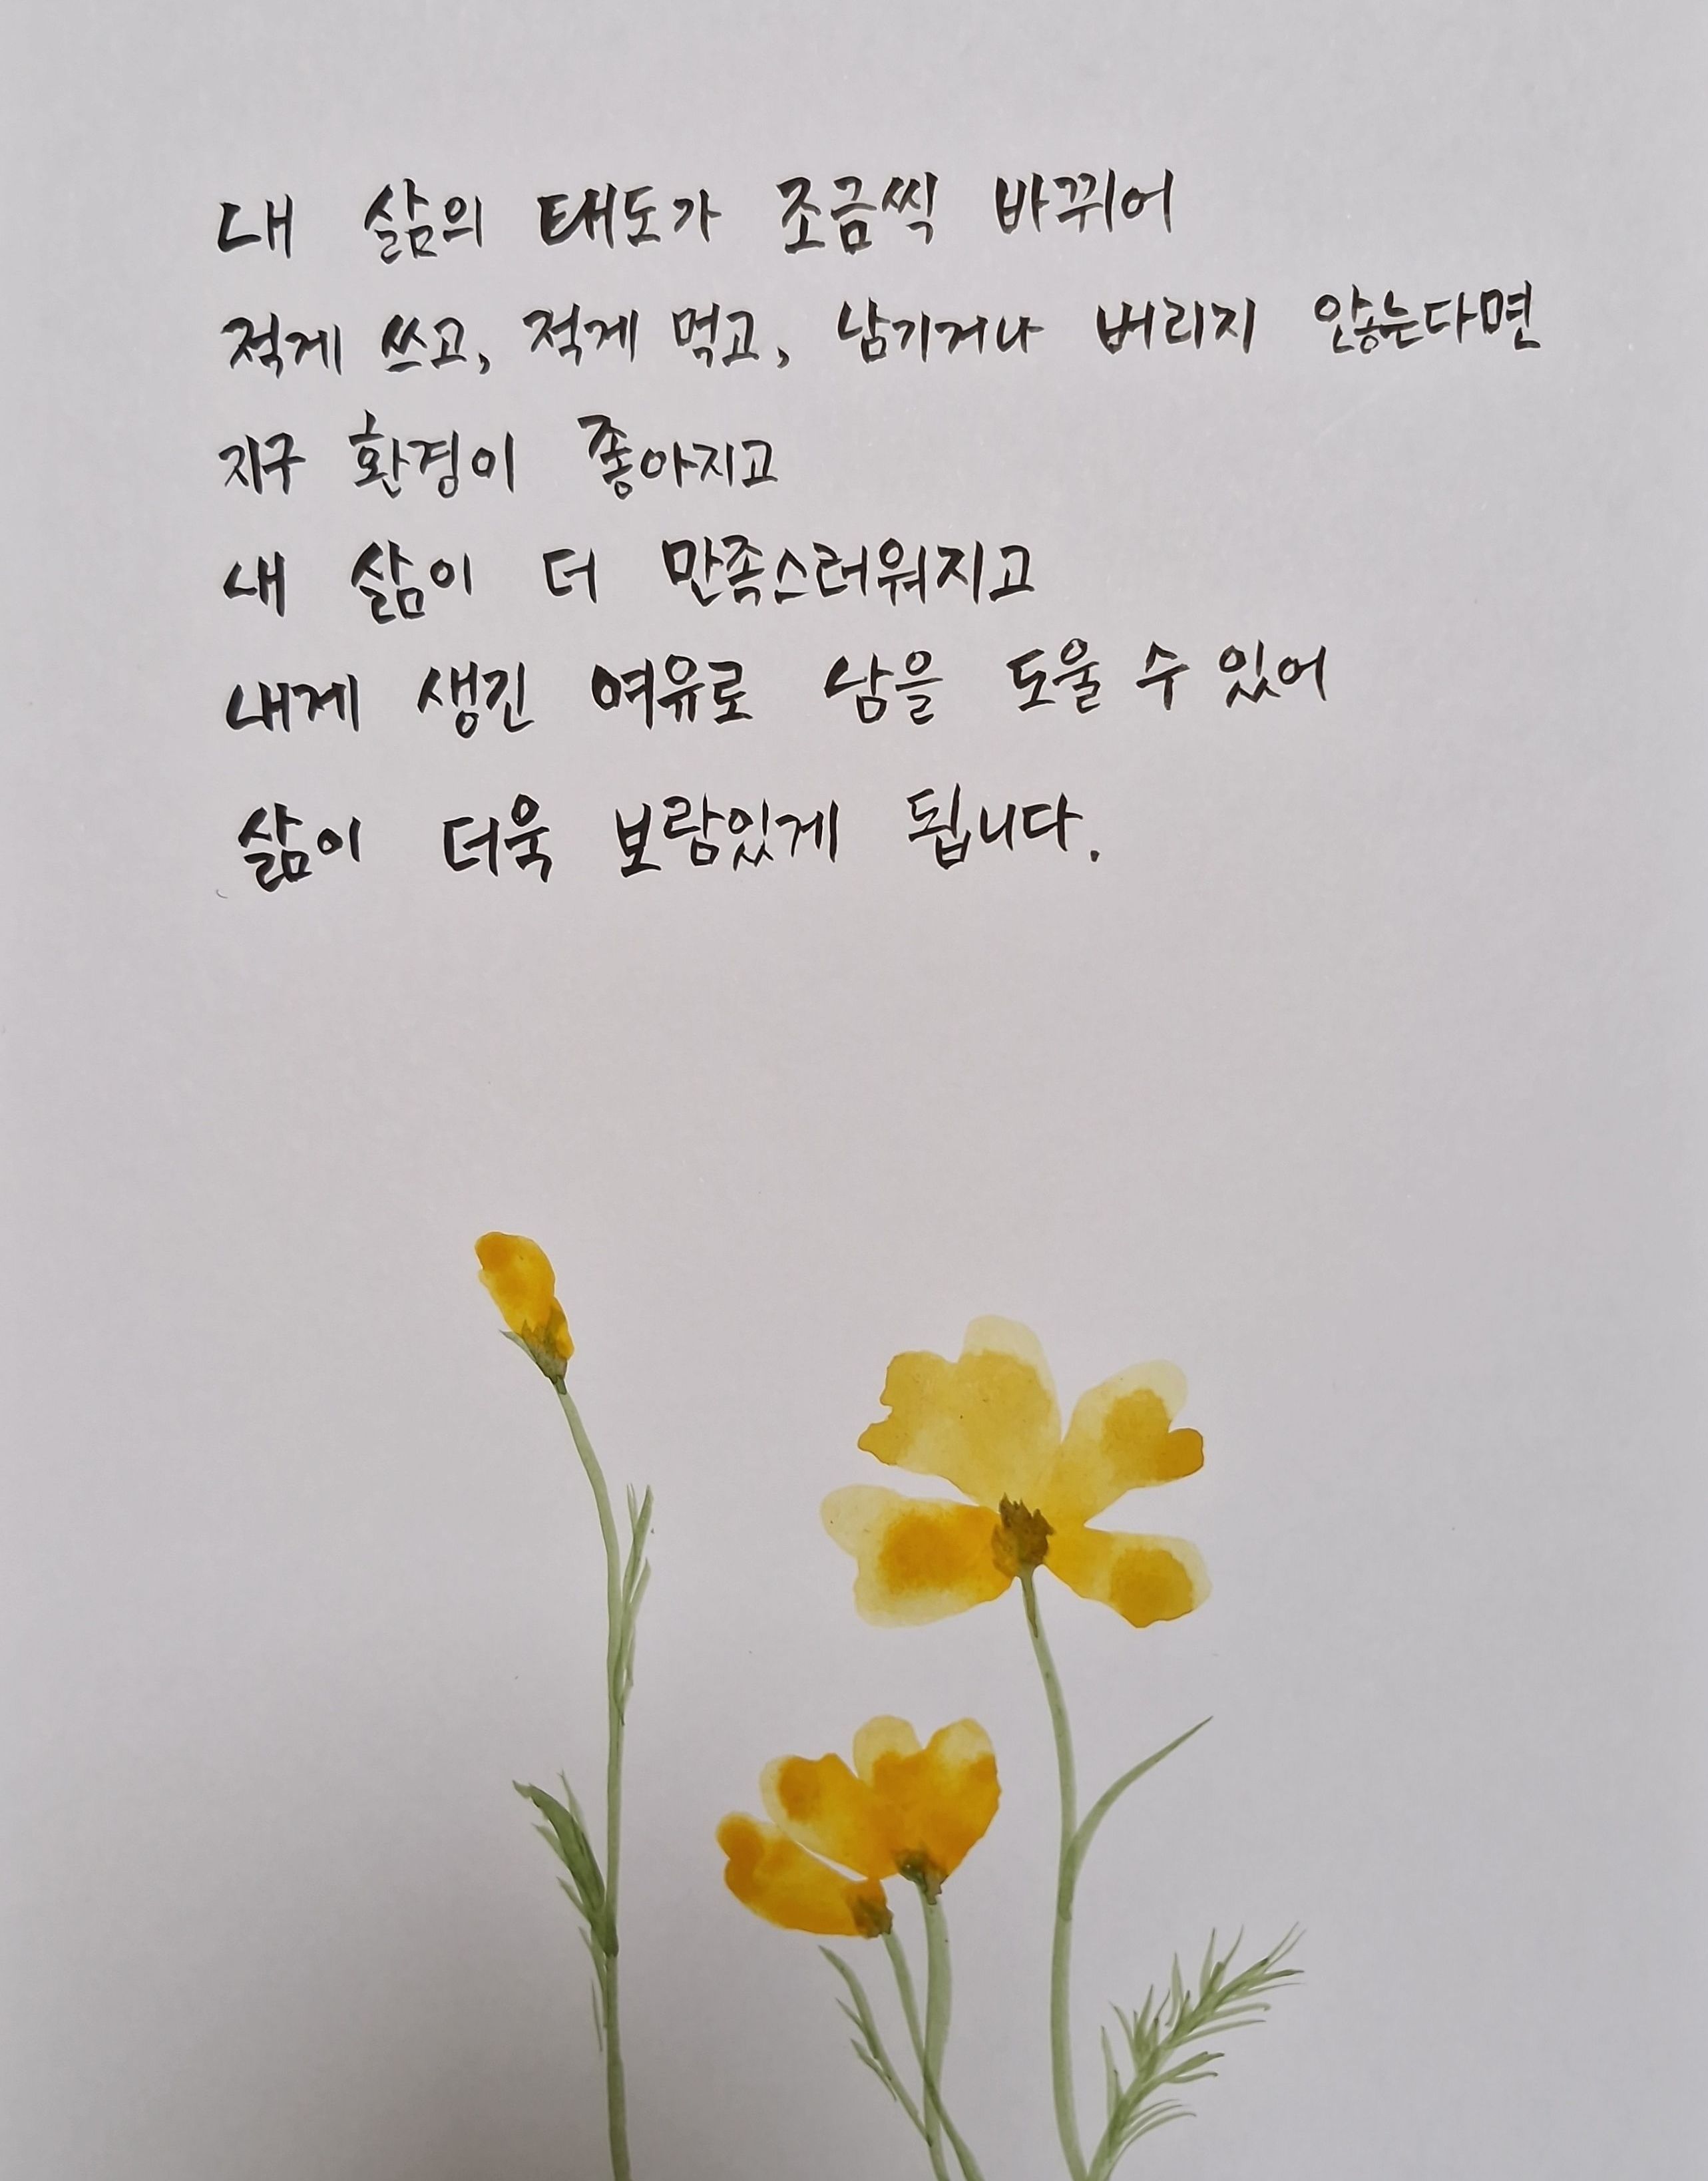 내 삶의 태도가 조금씩 바뀌어
적게 쓰고, 적게 먹고, 남기거나 버리지 않는다면
지구 환경이 좋아지고
내 삶이 더 만족스러워지고
내게 생긴 여유로 남을 도울 수 있어
삶이 더욱 보람있게 됩니다.